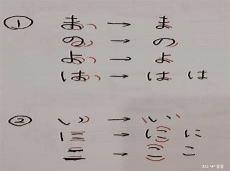 ① ま → ま
の → の
よ → よ
は → は は
② い → い
に → に に
こ → こ こ